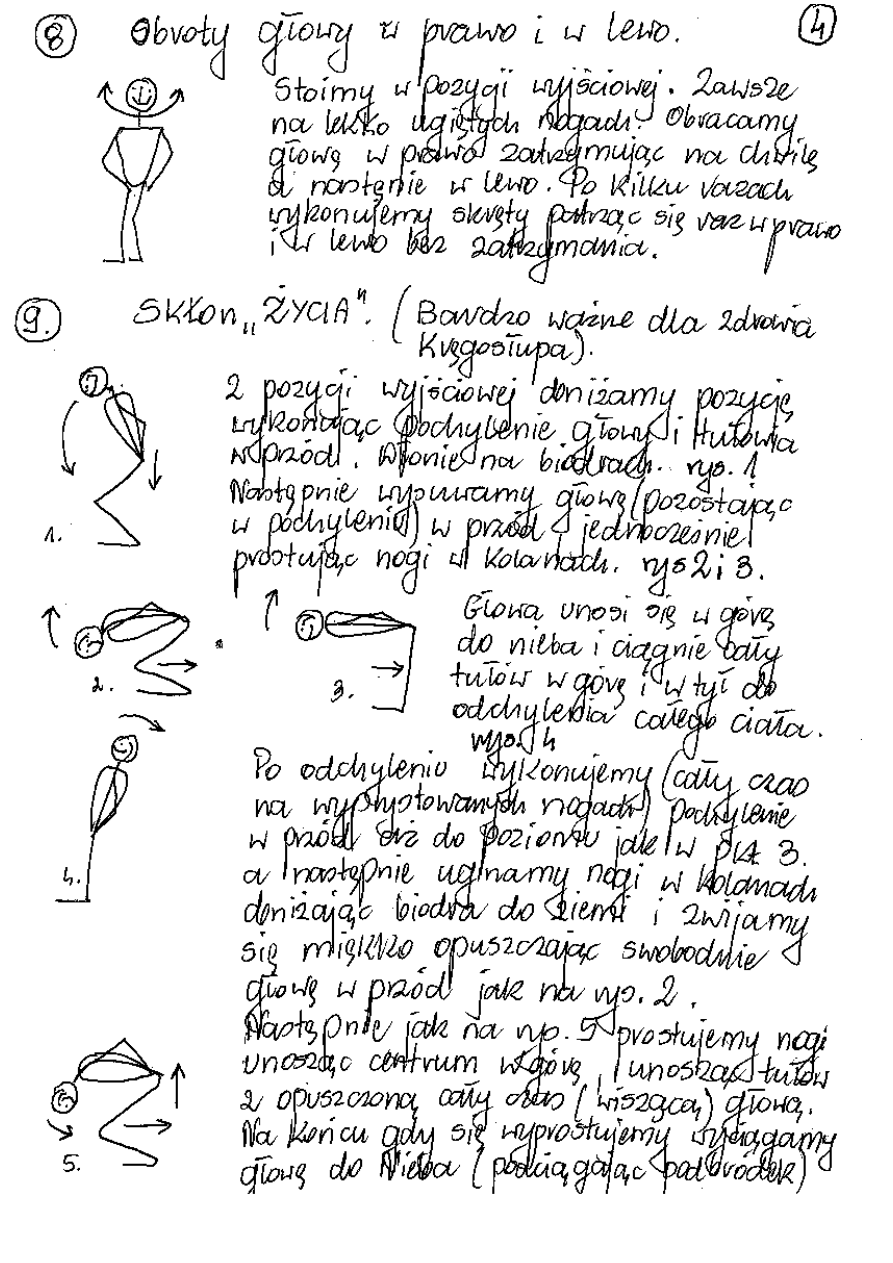 8 Obroty głowy w prawo i w lewo. 4
Stoimy w pozycji wyjściowej. Zawsze
na lekko ugiętych nogach. Obracamy
głowę w prawo zatrzymując na chwilę
a następnie w lewo. Po kilku razach
wykonujemy skręty patrząc się raz w prawo
i w lewo bez zatrzymania.
9. SKŁON „ŻYCIA". (Bardzo ważne dla zdrowia
Kręgosłupa).
Z pozycji wyjściowej doniżamy pozycję
wykonując pochylenie głowy i tułowia
w przód. Dłonie na biodrach. rys. 1
Następnie wysuwamy głowę (pozostając
w pochyleniu) w przód i jednocześnie
1.
prostując nogi w kolanach. rys 2 i 3.
Głowa unosi się w górę
do nieba i ciągnie cały
tułów w górę i w tył do
2.
3.
odchylenia całego ciała.
rys. 4
Po odchyleniu wykonujemy (cały czas
na wyprostowanych nogach) pochylenie
w przód aż do poziomu jak w pkt 3.
a następnie uginamy nogi w kolanach
4.
doniżając biodra do ziemi i zwijamy
się miękko opuszczając swobodnie
głowę w przód jak na rys. 2.
Następnie jak na rys. 5 prostujemy nogi
unosząc centrum w górę, i unosząc tułów
z opuszczoną cały czas (wiszącą) głową.
Na końcu gdy się wyprostujemy wyciągamy
5.
głowę do Nieba (podciągając podbródek)